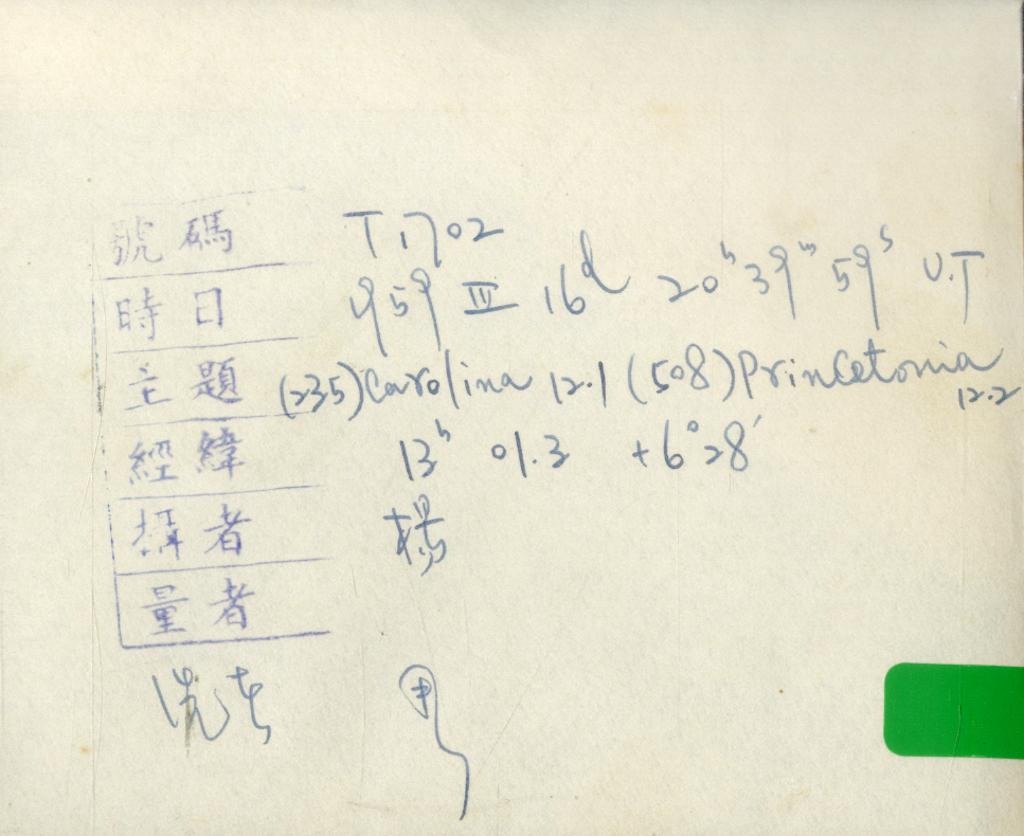 號碼 T1702
時日 959 III 16d 20h 39m 59s U.T
主題 (235) Carolina 12.1 (508) Princetonia 12.2
經緯 13h 01.3 +6°28'
攝者 楊
量者
洗者